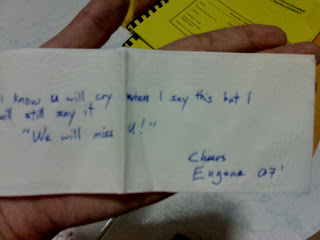 I know u will cry when I say this but I
will still say it
"We will miss U!"
Cheers
Eugene 07'